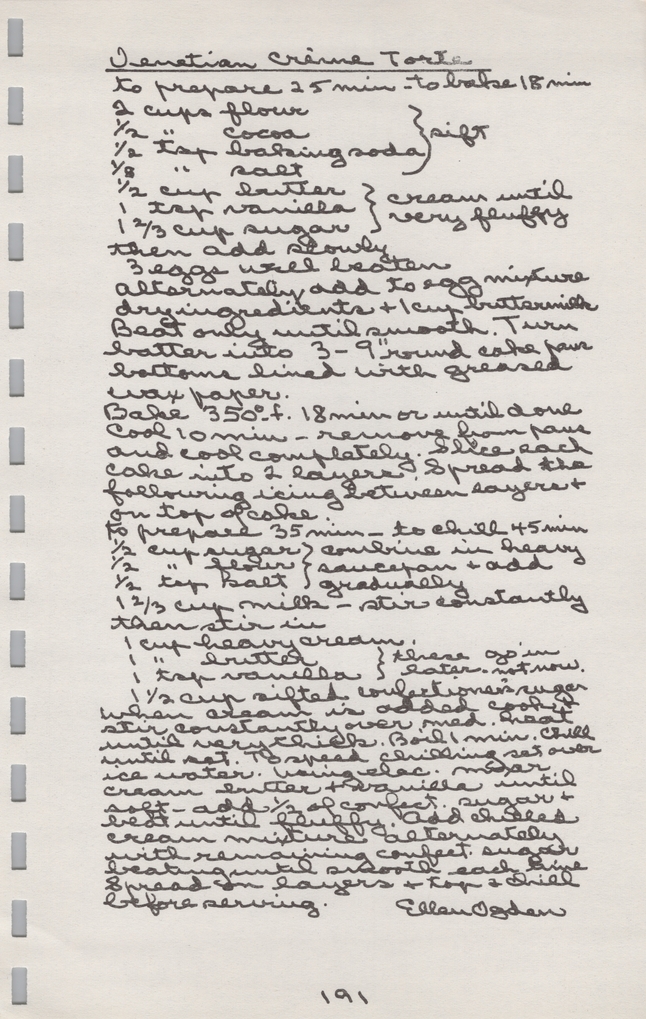 Venetian Crème Torte
to prepare 25 min - to bake 18 min
2 cups flour
1/2 " cocoa } sift
1/2 tsp baking soda
1/8 " salt
1/2 cup butter } cream until
1 tsp vanilla } very fluffy
1 2/3 cup sugar
then add slowly
3 eggs well beaten
alternately add to egg mixture
dry ingredients + 1 cup buttermilk
Beat only until smooth. Turn
batter into 3 - 9" round cake pans
bottoms lined with greased
wax paper.
Bake 350° f. 18 min or until done
Cool 10 min - remove from pans
and cool completely. Slice each
cake into 2 layers. Spread the
following icing between layers +
on top of cake.
to prepare 35 min - to chill 45 min
1/2 cup sugar } combine in heavy
1/2 " flour } saucepan + add
1/2 tsp salt } gradually
1 2/3 cup milk - stir constantly
then stir in
1 cup heavy cream.
1 " butter } these go in
1 tsp vanilla } later - not now.
1 1/2 cup sifted confectioner's sugar
when cream is added cook +
stir constantly over med. heat
until very thick. Boil 1 min. Chill
until set. To speed chilling set over
ice water. Using elec. mixer
cream butter + vanilla until
soft - add 1/2 of confect. sugar +
beat until fluffy. Add chilled
cream mixture alternately
with remaining confect. sugar
beating until smooth each time
Spread on layers + top + chill
before serving. Ellen Ogden
191